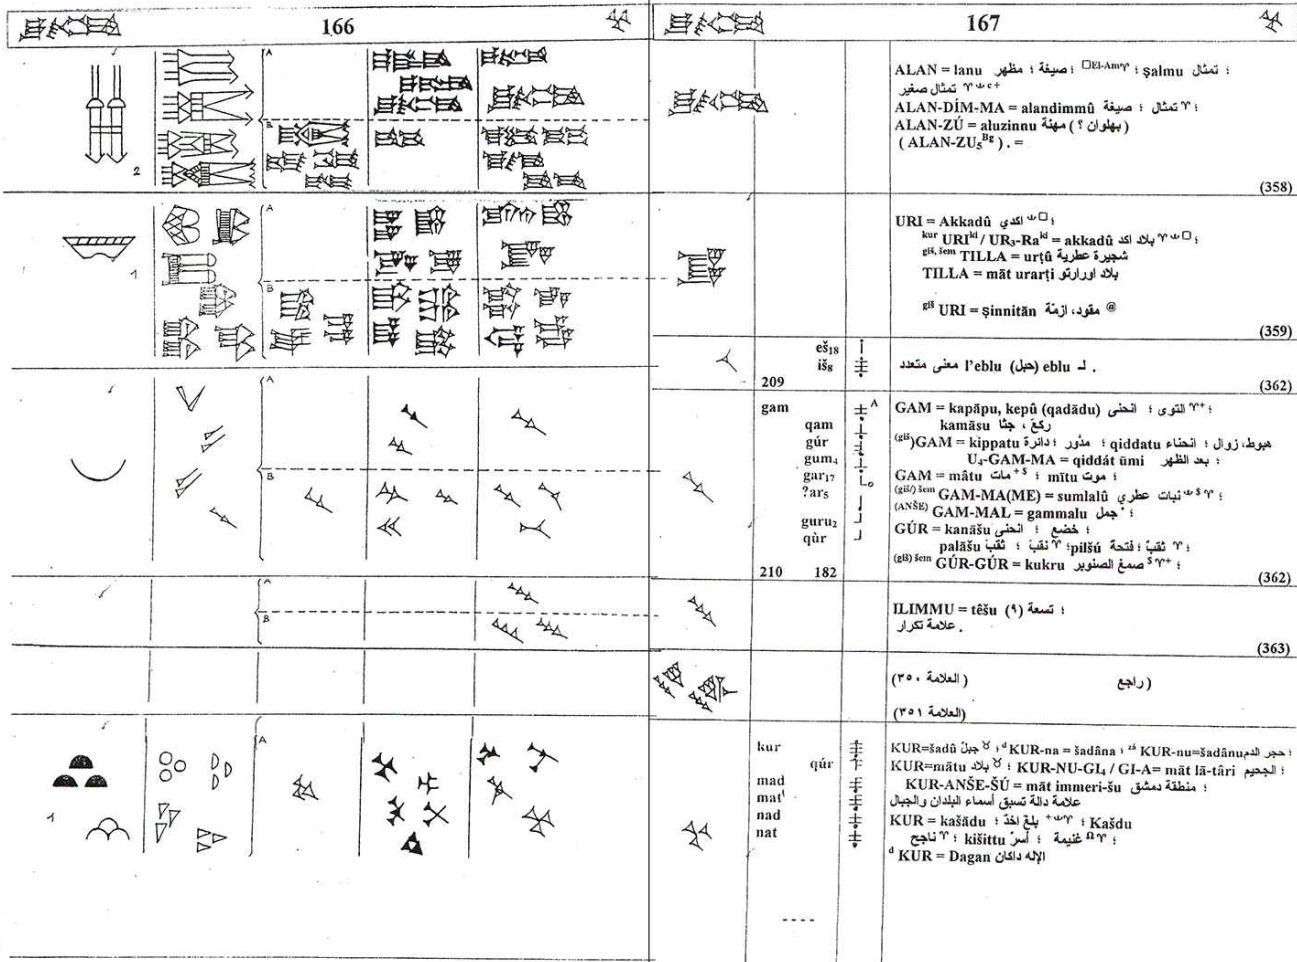 166
167
ALAN = lanu صيغة ؛ مظهر ؛ ṣalmu تمثال ؛
تمثال صغير
ALAN-DÍM-MA = alandimmû تمثال ؛ صيغة ؛
ALAN-ZÚ = aluzinnu مهنة ( بهلوان ؟ )
( ALAN-ZU₅ᴮᵍ ) . =
(358)
A
B
2
URI = Akkadû اكدي ؛
kur URIki / UR₃-Raki = akkadû بلاد اكد ؛
giš, šem TILLA = urṭû شجيرة عطرية
TILLA = māt urarṭi بلاد اورارتو
giš URI = ṣinnitān مقود، ازمّة @
(359)
A
B
1
eš₁₈
iš₈
209
معنى متعدد l'eblu (حبل) eblu لـ .
(362)
gam
qam
gúr
gum₄
gar₁₇
?ar₅
guru₂
qùr
210 182
GAM = kapāpu, kepû (qadādu) التوى ؛ انحنى ؛
kamāsu ركع ، جثا
(giš)GAM = kippatu مدوّر ؛ دائرة ؛ qiddatu هبوط، زوال ؛ انحناء
U₄-GAM-MA = qiddát ūmi بعد الظهر ؛
GAM = mâtu مات ؛ mītu موت ؛
(giš/) šem GAM-MA(ME) = sumlalû نبات عطري ؛
(ANŠE) GAM-MAL = gammalu جمل ؛
GÚR = kanāšu خضع ؛ انحنى ؛
palāšu نقب ؛ ثقب ؛ pilšú ثقب ؛ فتحة ؛
(giš) šem GÚR-GÚR = kukru صمغ الصنوبر ؛
(362)
A
B
ILIMMU = têšu (٩) تسعة ؛
علامة تكرار .
(363)
A
B
( راجع (العلامة ٣٥٠)
(العلامة ٣٥١)
kur
qúr
mad
mat
nad
nat
KUR=šadû جبل ؛ d KUR-na = šadâna ؛ zá KUR-nu=šadânu حجر الدم ؛
KUR=mātu بلاد ؛ KUR-NU-GI₄ / GI-A= māt lā-târi الجحيم ؛
KUR-ANŠE-ŠÚ = māt immeri-šu منطقة دمشق ؛
علامة دالة تسبق أسماء البلدان والجبال
KUR = kašādu بلغ اخذ ؛ Kašdu
ناجح ؛ kišittu أسر ؛ غنيمة ؛
d KUR = Dagan الإله داكان
A
1
----